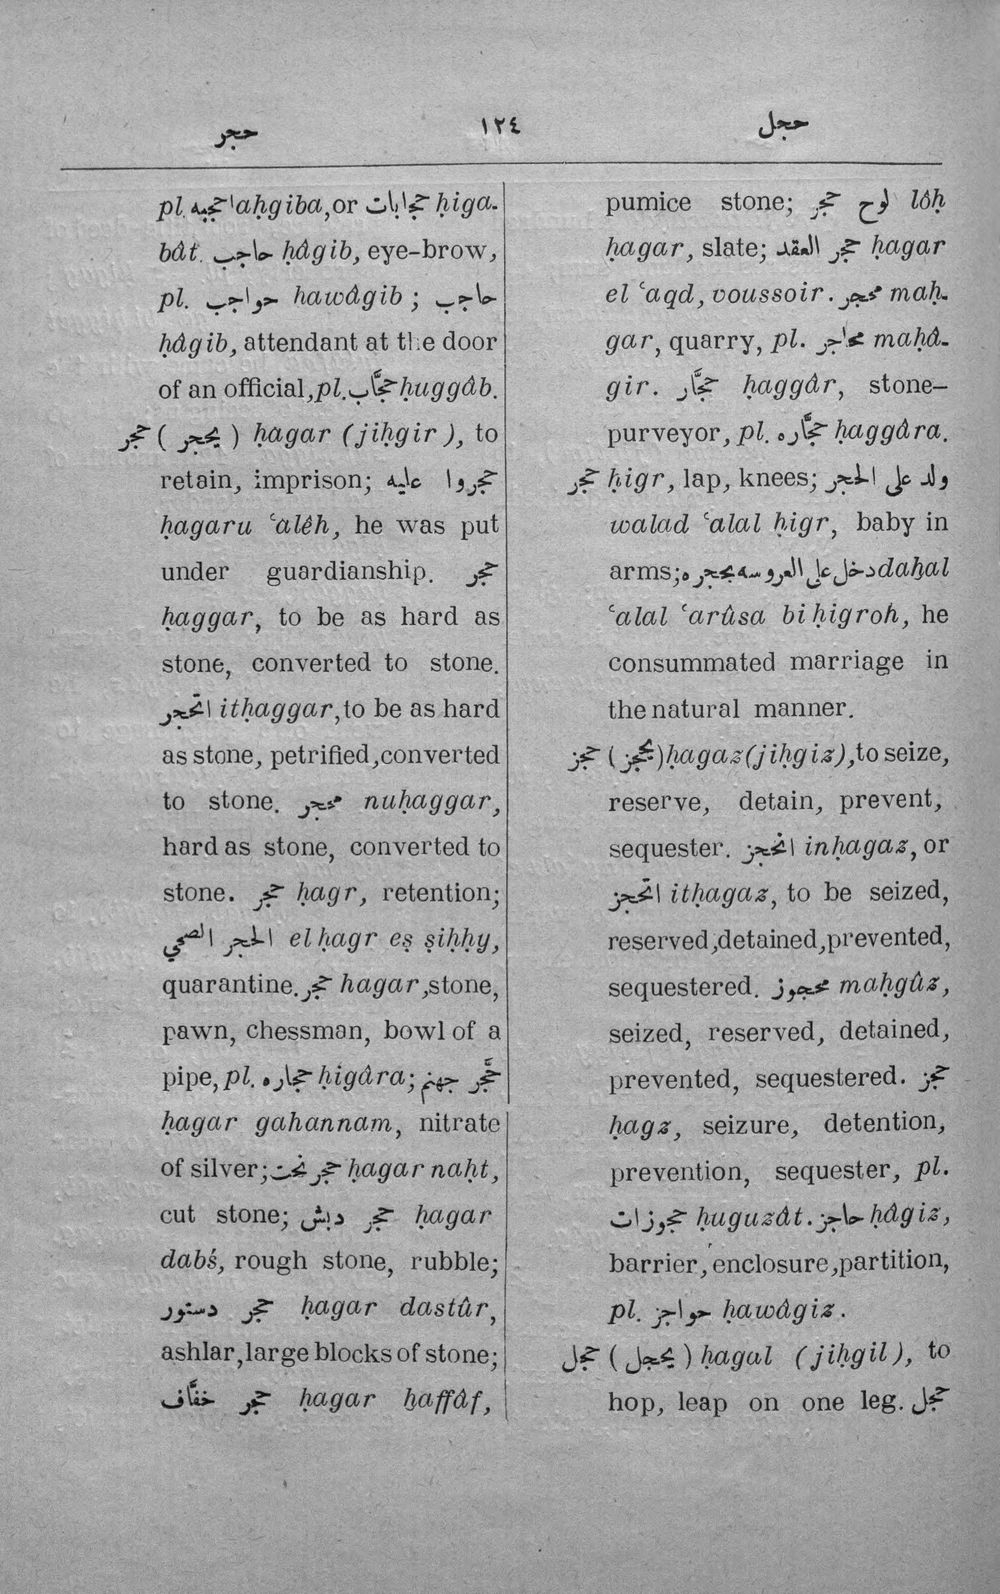 حجر ١٢٤ حجل
pl. احجبه aḥgiba, or حجابات ḥiga-
bât. حاجب ḥâgib, eye-brow,
pl. حواجب hawâgib ; حاجب
ḥâgib, attendant at the door
of an official, pl. حجَّاب huggâb.
حجر ( يحجر ) ḥagar (jiḥgir), to
retain, imprison; حجروا عليه
ḥagaru ʿalêh, he was put
under guardianship. حجر
ḥaggar, to be as hard as
stone, converted to stone.
اتحجر itḥaggar, to be as hard
as stone, petrified, converted
to stone. محجر nuḥaggar,
hard as stone, converted to
stone. حجر ḥagr, retention;
الحجر الصحي el ḥagr eṣ ṣiḥḥy,
quarantine. حجر ḥagar, stone,
pawn, chessman, bowl of a
pipe, pl. حجاره ḥigâra; حَجَر جهنم
ḥagar gahannam, nitrate
of silver; حجر نحت ḥagar naḥt,
cut stone; حجر دبش ḥagar
dabś, rough stone, rubble;
حجر دستور ḥagar dastûr,
ashlar, large blocks of stone;
حجر خفَّاف ḥagar ḫaffâf,
pumice stone; لوح حجر lôḥ
ḥagar, slate; حجر العقد ḥagar
el ʿaqd, voussoir. محجر maḥ-
gar, quarry, pl. محاجر maḥâ-
gir. حجَّار ḥaggâr, stone-
purveyor, pl. حجَّاره ḥaggâra.
حجر ḥigr, lap, knees; ولد على الحجر
walad ʿalal ḥigr, baby in
arms; دخل على العروسه بحجره daḫal
ʿalal ʿarûsa bi ḥigroh, he
consummated marriage in
the natural manner.
حجز ( يحجز ) ḥagaz (jiḥgiz), to seize,
reserve, detain, prevent,
sequester. انحجز inḥagaz, or
اتحجز itḥagaz, to be seized,
reserved, detained, prevented,
sequestered. محجوز maḥgûz,
seized, reserved, detained,
prevented, sequestered. حجز
ḥagz, seizure, detention,
prevention, sequester, pl.
حجوزات ḥuguzât. حاجز ḥâgiz,
barrier, enclosure, partition,
pl. حواجز ḥawâgiz.
حجل ( يحجل ) ḥagal (jiḥgil), to
hop, leap on one leg. حجل